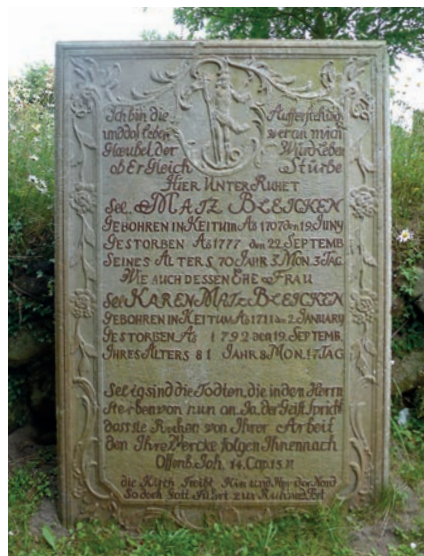 Ich bin die Aufferstehung
und das leben wer an mich
Glæubet der Wird leben
ob Er Gleich Stürbe
HIER UNTER RUHET
Sel. MATZ BLEICKEN
GEBOHREN IN KEITUM Aō 1707 den 19 JUNY
GESTORBEN Aō 1777 den 22 SEPTEMB
SEINES ALTERS 70 JAHR 3 MON. 3 TAG
WIE AUCH DESSEN EHE = FRAU
Sel. KAREN MATZ BLEICKEN
GEBOHREN IN KEITUM Aō 1711 den 2 JANUARY
GESTORBEN Aō 1792 den 19. SEPTEMB.
IHRES ALTERS 81 JAHR 8 MON. 17 TAG
Selig sind die Todten, die in dem Herrn
sterben von nun an. Ja, der Geist spricht
dass sie Ruhen von Ihrer Arbeit
den Ihre Wercke folgen Ihnen nach
Offenb. Joh. 14. Cap. 13 v.
die treibt Hin und Her der Nord
So doch Gott Führt zur Ruh und